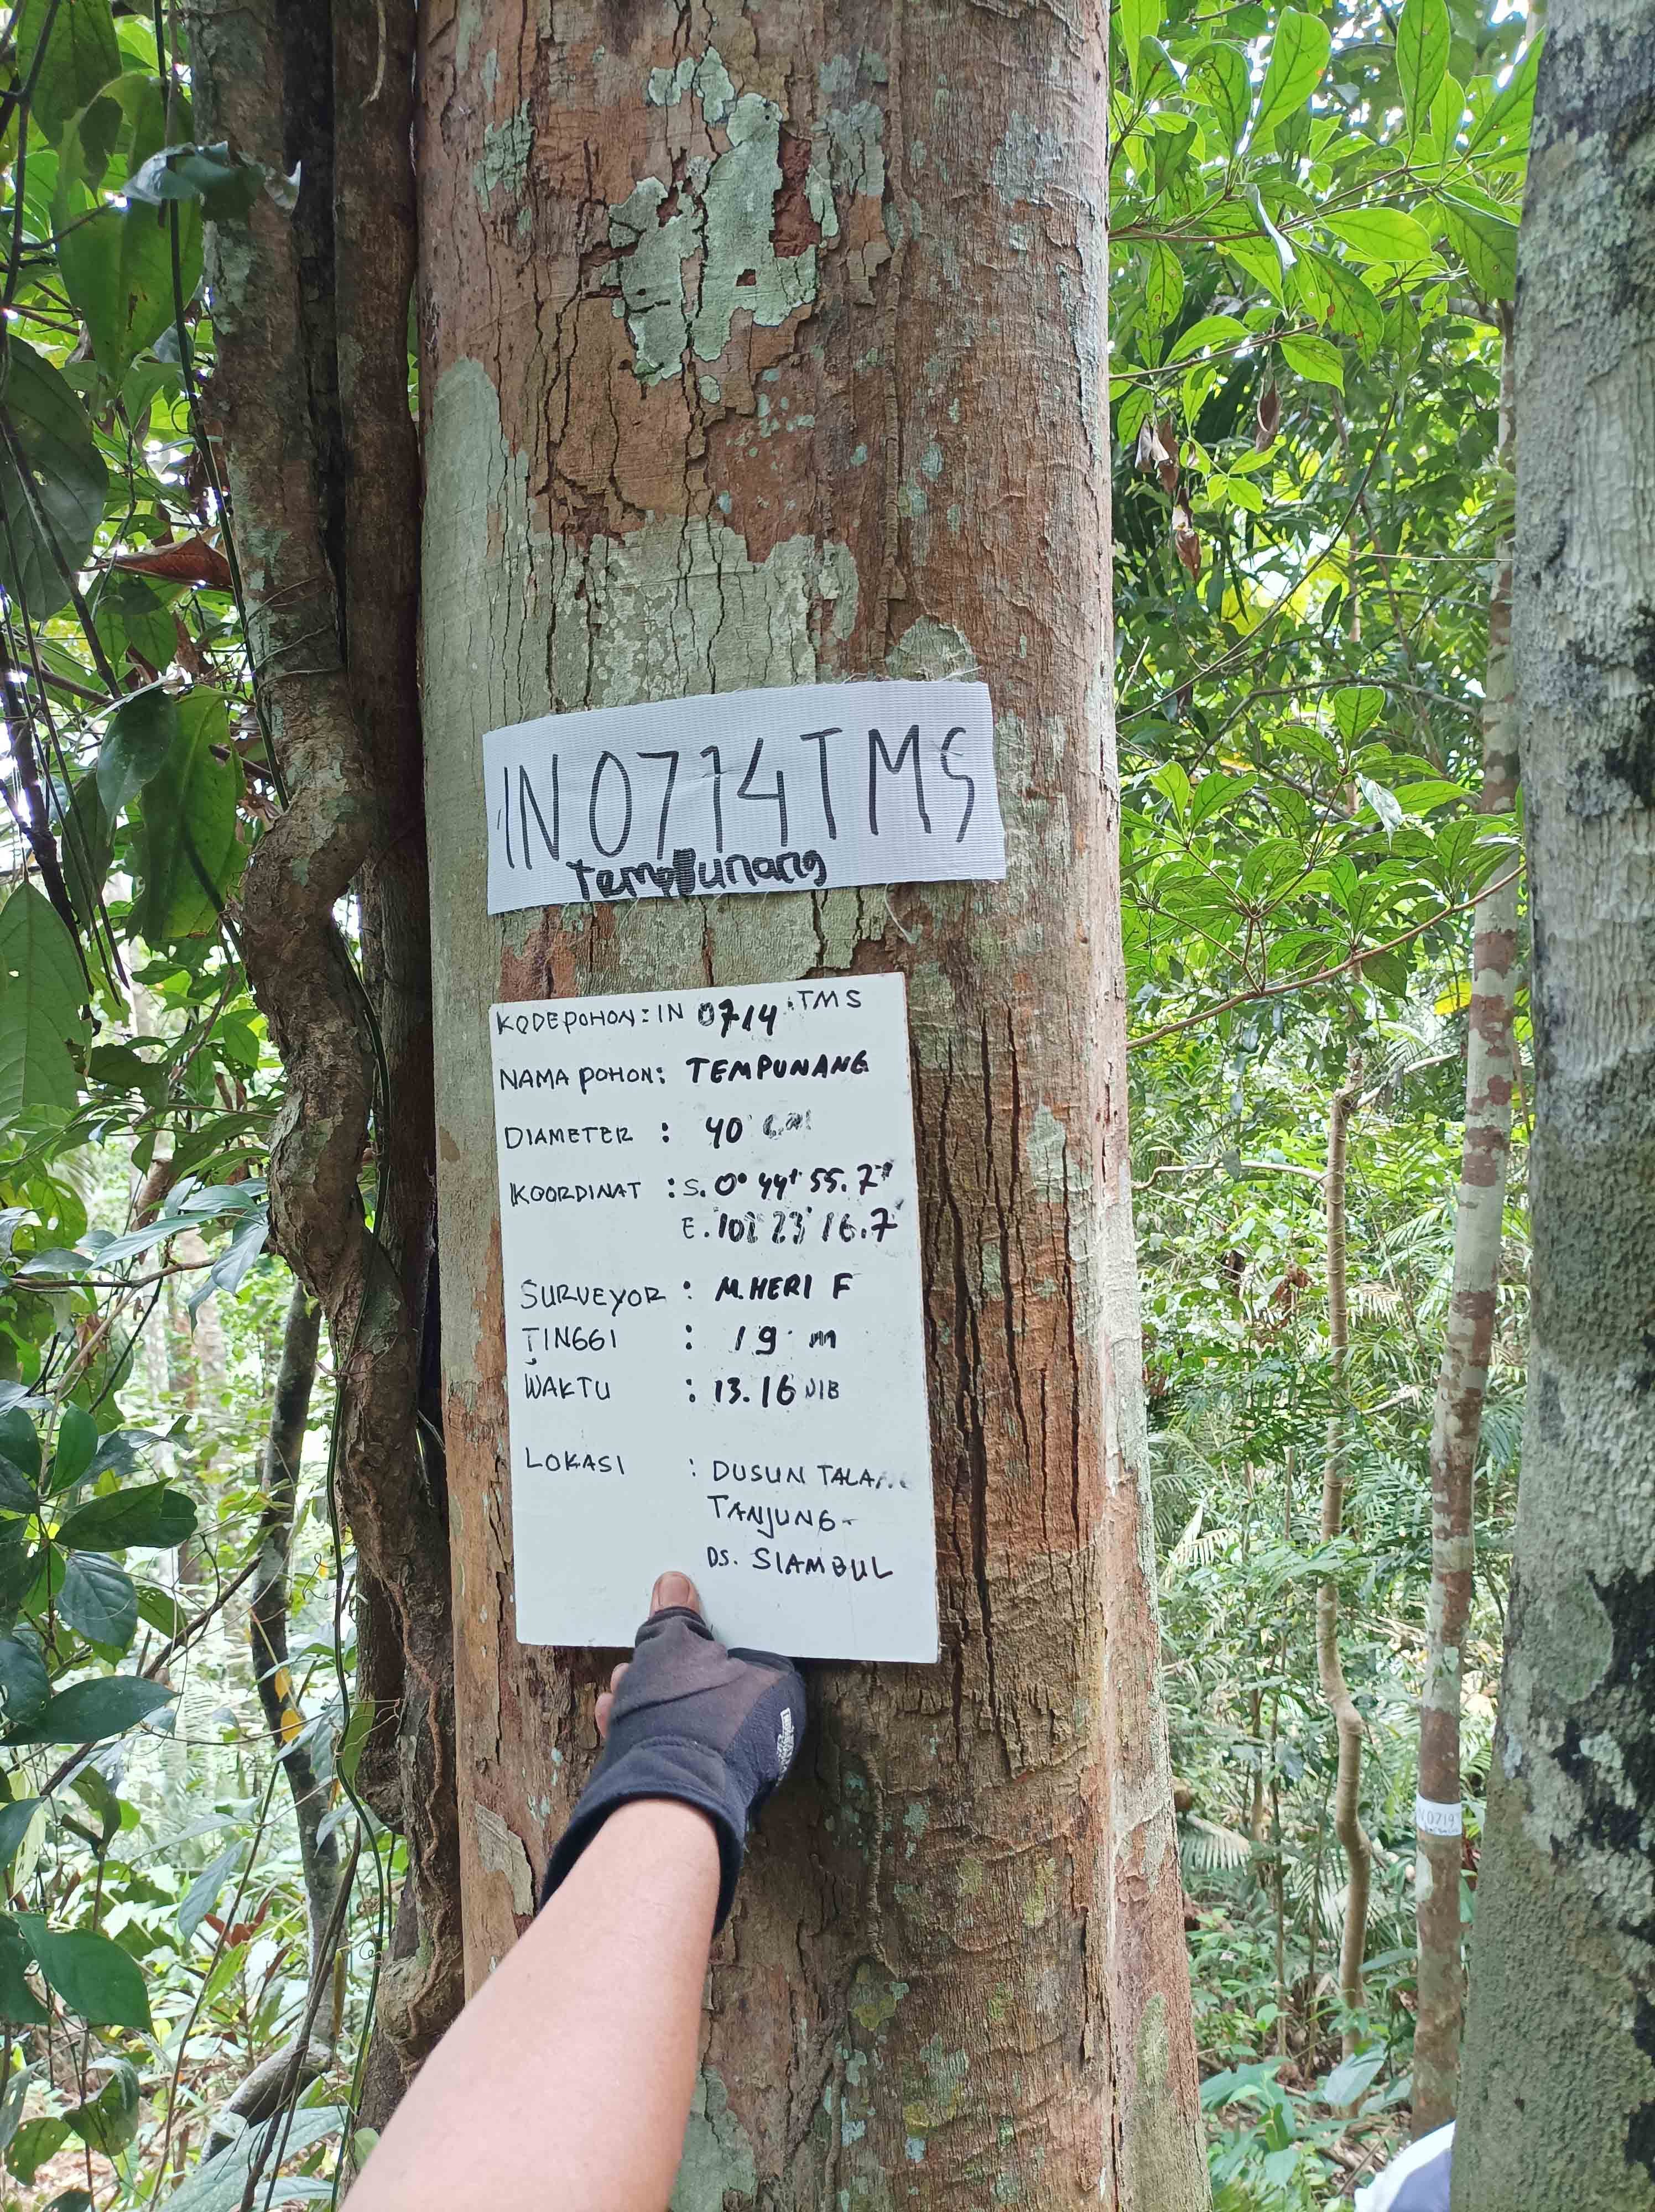 IN 0714 TMS
Tempunang
KODE POHON : IN 0714 TMS
NAMA POHON : TEMPUNANG
DIAMETER : 40 cm
KOORDINAT : S. 0° 44' 55.7"
E. 102 23' 16.7"
SURVEYOR : M. HERI F
TINGGI : 19 m
WAKTU : 13.16 WIB
LOKASI : DUSUN TALANG
TANJUNG -
DS. SIAMBUL
IN 0719